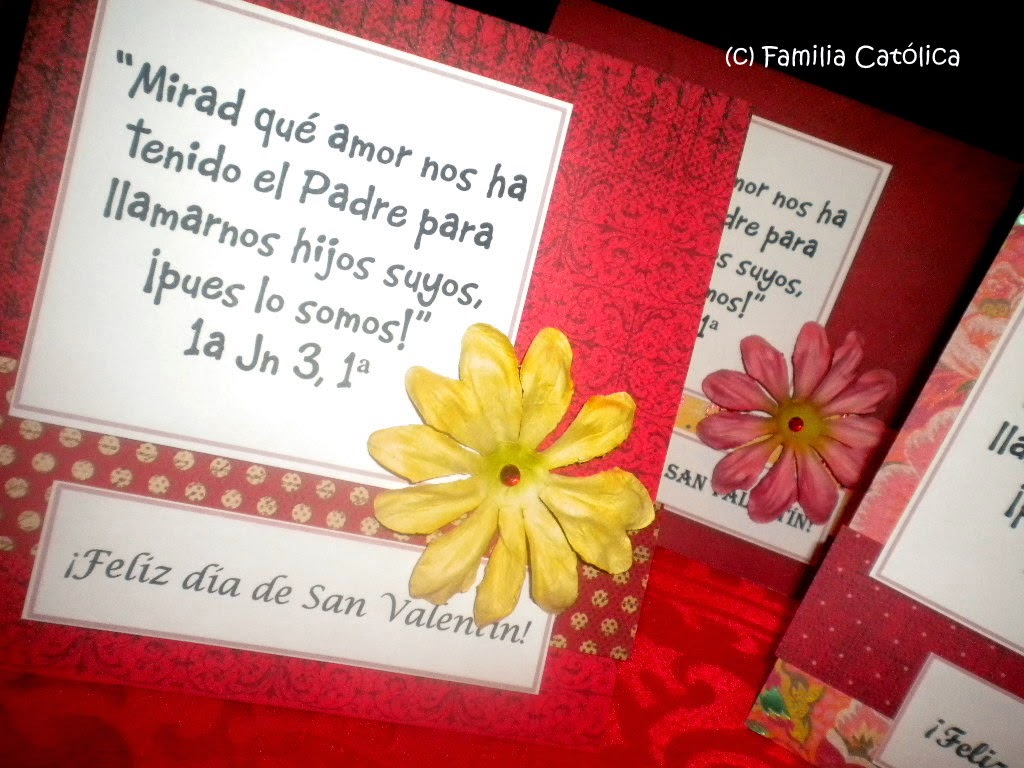 (c) Familia Católica
“Mirad qué amor nos ha
tenido el Padre para
llamarnos hijos suyos,
¡pues lo somos!”
1a Jn 3, 1ª
¡Feliz día de San Valentín!
nos ha
para
suyos,
1ª
SAN
¡Feliz